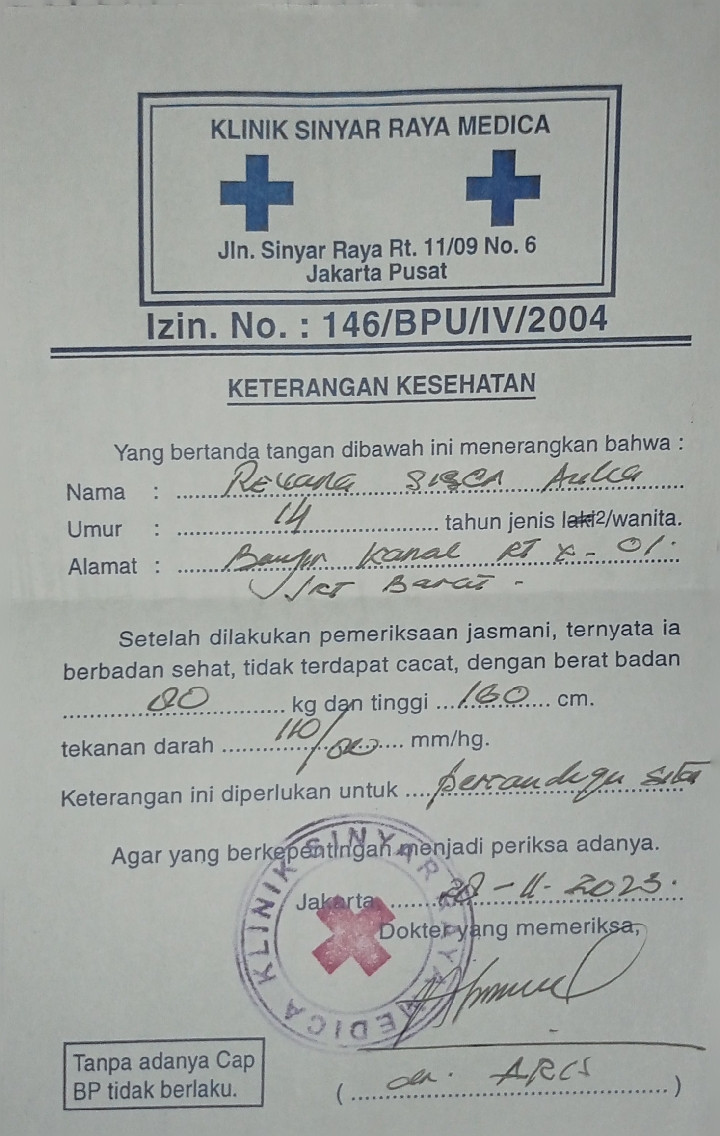 KLINIK SINYAR RAYA MEDICA
Jln. Sinyar Raya Rt. 11/09 No. 6
Jakarta Pusat
Izin. No. : 146/BPU/IV/2004
KETERANGAN KESEHATAN
Yang bertanda tangan dibawah ini menerangkan bahwa :
Nama :
Umur : 14 tahun jenis laki2/wanita.
Alamat : Kanal RT
Barat -
Setelah dilakukan pemeriksaan jasmani, ternyata ia
berbadan sehat, tidak terdapat cacat, dengan berat badan
kg dan tinggi 160 cm.
tekanan darah 110/80 mm/hg.
Keterangan ini diperlukan untuk
Agar yang berkepentingan menjadi periksa adanya.
Jakarta, 28-11-2023.
Dokter yang memeriksa,
KLINIK SINYAR RAYA MEDICA
Tanpa adanya Cap
BP tidak berlaku.
( dr. ARIS )